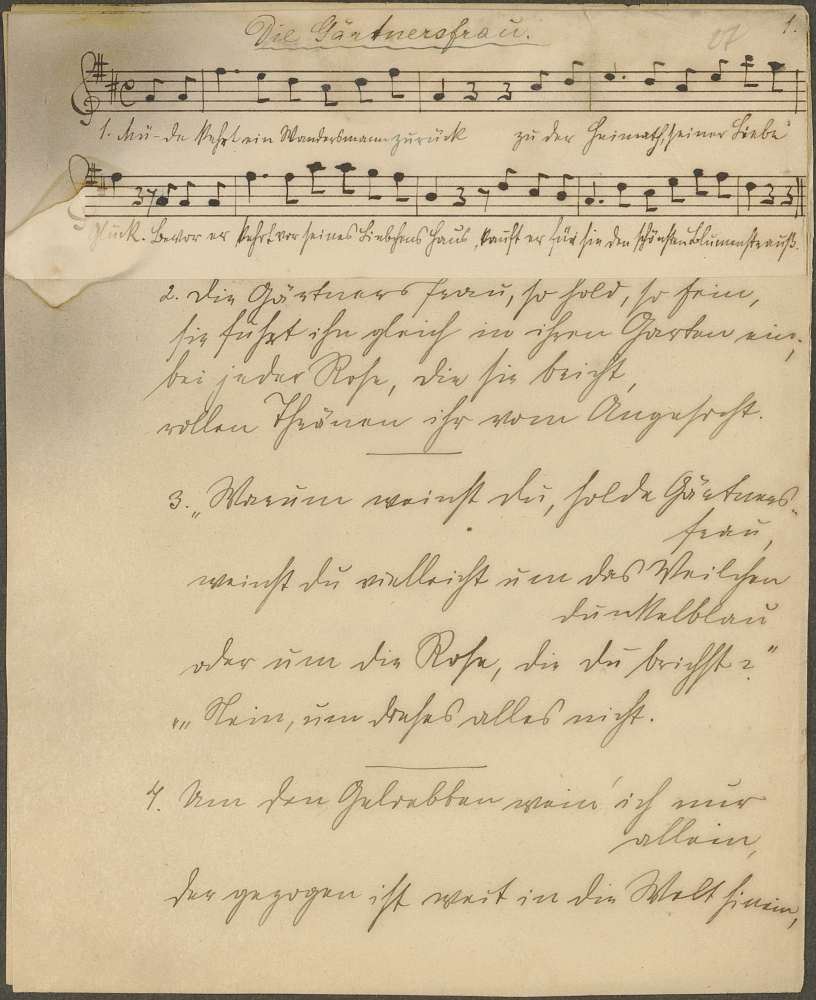 Die Gärtnersfrau.
27
1.
1. Mü-de kehrt ein Wandersmann zurück zu der Heimath, seiner Liebe
Glück. Bevor er kehrt vor seines Liebchens Haus, kauft er für sie den schönsten Blumenstrauß.
2. Die Gärtnersfrau, so hold, so fein,
sie führt ihn gleich in ihren Garten ein;
bei jeder Rose, die sie bricht,
rollen Thränen ihr vom Angesicht.
3. „Warum weinst du, holde Gärtners-
frau,
weinst du vielleicht um das Veilchen
dunkelblau
oder um die Rose, die du brichst?"
„„Nein, um dieses alles nicht.
4. Um den Geliebten wein' ich nur
allein,
der gezogen ist weit in die Welt hinein,